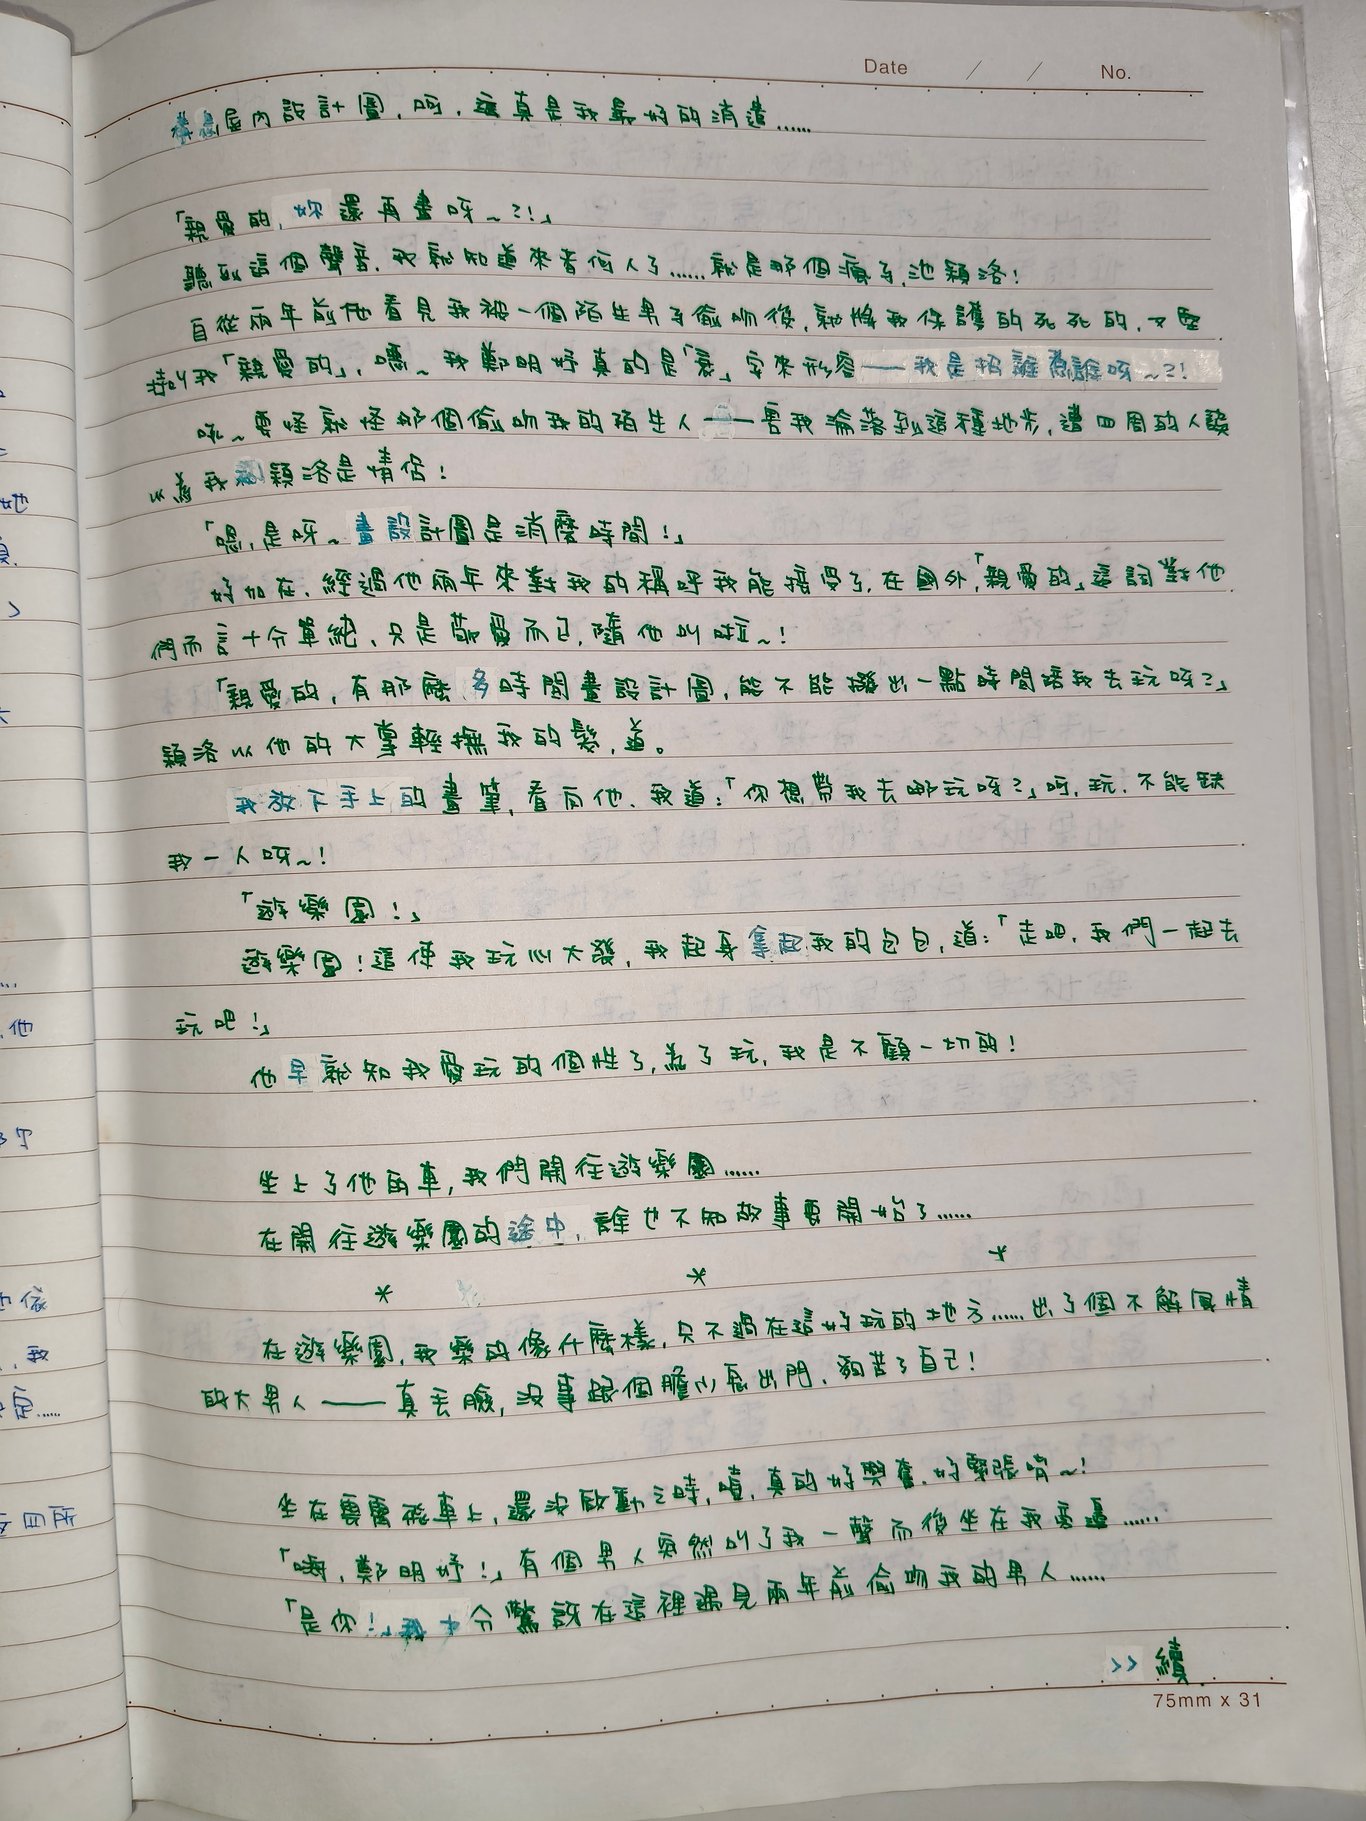 Date / / No.
構思屋內設計圖，呵，這真是我最好的消遣……
「親愛的，妳還再畫呀～?!」
聽到這個聲音，我就知道來者何人了……就是那個瘋子，池穎洛!
自從兩年前他看見我被一個陌生男子偷吻後，就將我保護的死死的，又堅
持叫我「親愛的」，嗯～我鄭明妤真的是「衰」字來形容——我是招誰惹誰呀～?!
唉～要怪就怪那個偷吻我的陌生人——害我淪落到這種地步，遭四周的人誤
以為我和穎洛是情侶!
「嗯，是呀～畫設計圖是消磨時間!」
好加在，經過他兩年來對我的稱呼我能接受了，在國外，「親愛的」這詞對他
們而言十分單純，只是 愛而已，隨他叫啦～!
「親愛的，有那麼多時間畫設計圖，能不能撥出一點時間陪我去玩呀?」
穎洛以他的大掌輕撫我的髮，道。
我放下手上的畫筆，看向他，我道：「你想帶我去哪玩呀?」呵，玩，不能缺
我一人呀～!
「遊樂園!」
遊樂園!這使我玩心大發，我起身拿起我的包包，道：「走吧，我們一起去
玩吧!」
他早就知我愛玩的個性了，為了玩，我是不顧一切的!
坐上了他的車，我們開往遊樂園……
在開往遊樂園的途中，誰也不知故事要開始了……
* * *
在遊樂園，我樂的像什麼樣，只不過在這好玩的地方……出了個不解風情
的大男人——真丟臉，沒事跟個膽小鬼出門，夠苦了自己!
坐在雲霄飛車上，還沒啟動之時，噴，真的好興奮，好緊張唷～!
「嗨，鄭明妤!」有個男人突然叫了我一聲而後坐在我旁邊……
「是你!」我十分驚訝在這裡遇見兩年前偷吻我的男人……
>> 續
75mm x 31